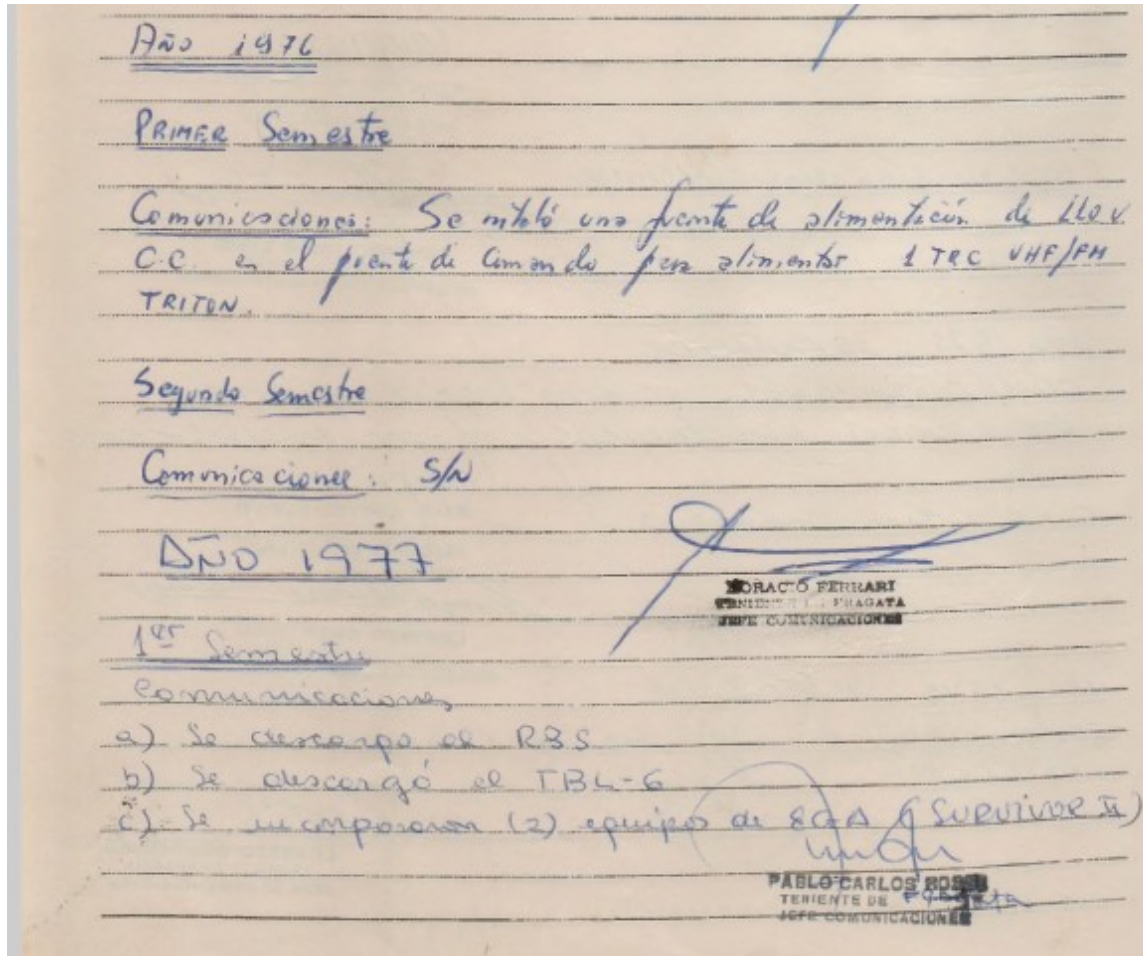 Año 1976
PRIMER Semestre
Comunicaciones: Se instaló una fuente de alimentación de 110 V.
C.C. en el puente de Comando para alimentar 1 TRC VHF/FM
TRITON.
Segundo Semestre
Comunicaciones: S/N
AÑO 1977
HORACIO FERRARI
TENIENTE DE FRAGATA
JEFE COMUNICACIONES
1er Semestre
Comunicaciones
a) Se descargo el RBS
b) Se descargó el TBL-6
c) Se incorporaron (2) equipos de (SURVIVOR II)
PABLO CARLOS
TENIENTE DE Fragata
JEFE COMUNICACIONES